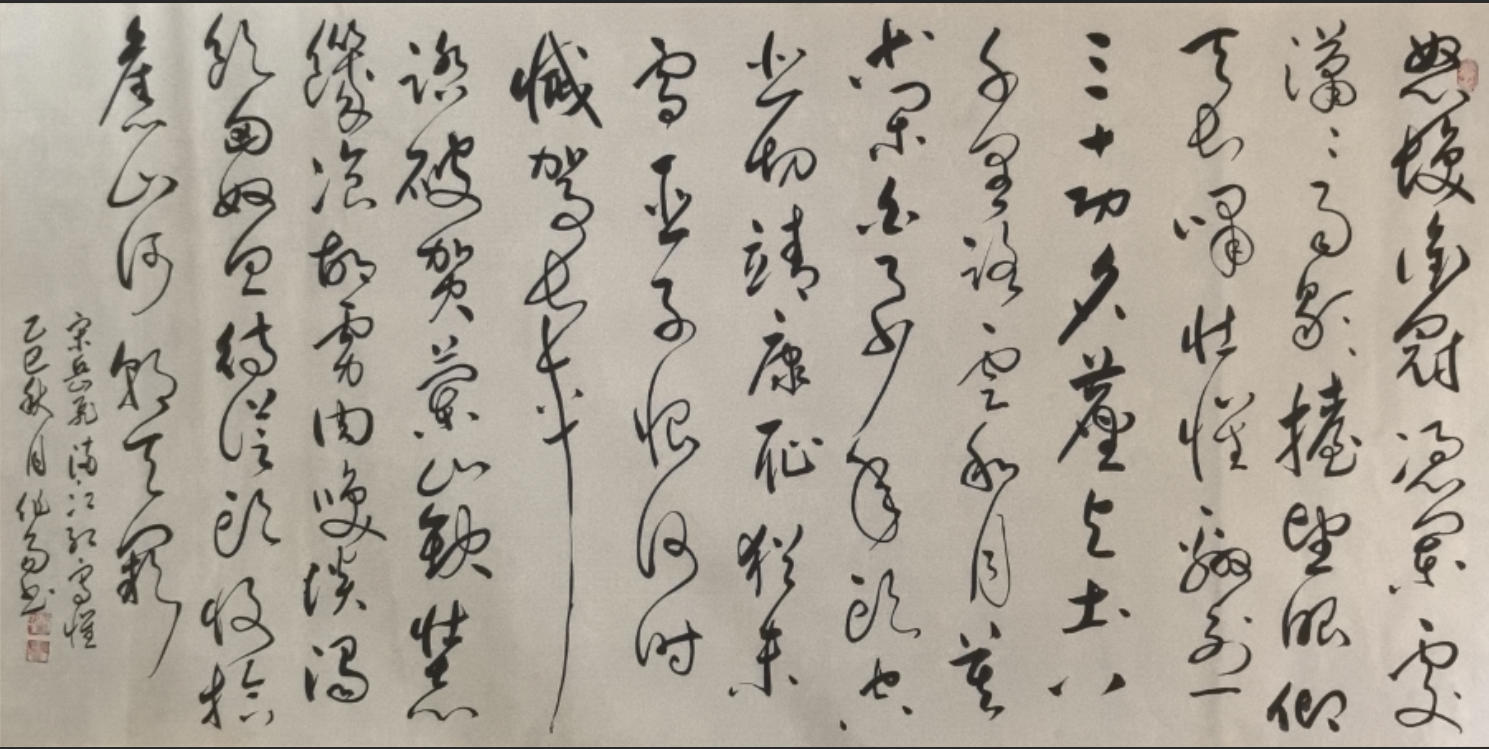 怒髮衝冠憑闌處
瀟瀟雨歇擡望眼仰
天長嘯壯懷激烈
三十功名塵與土八
千里路雲和月莫
等閒白了少年頭空
悲切靖康恥猶未
雪臣子恨何时
滅駕長車
踏破賀蘭山缺壯志
饑飡胡虜肉笑談渴
飲匈奴血待從頭收拾
舊山河朝天闕
宋岳飛滿江紅寫懷
乙巳秋月書